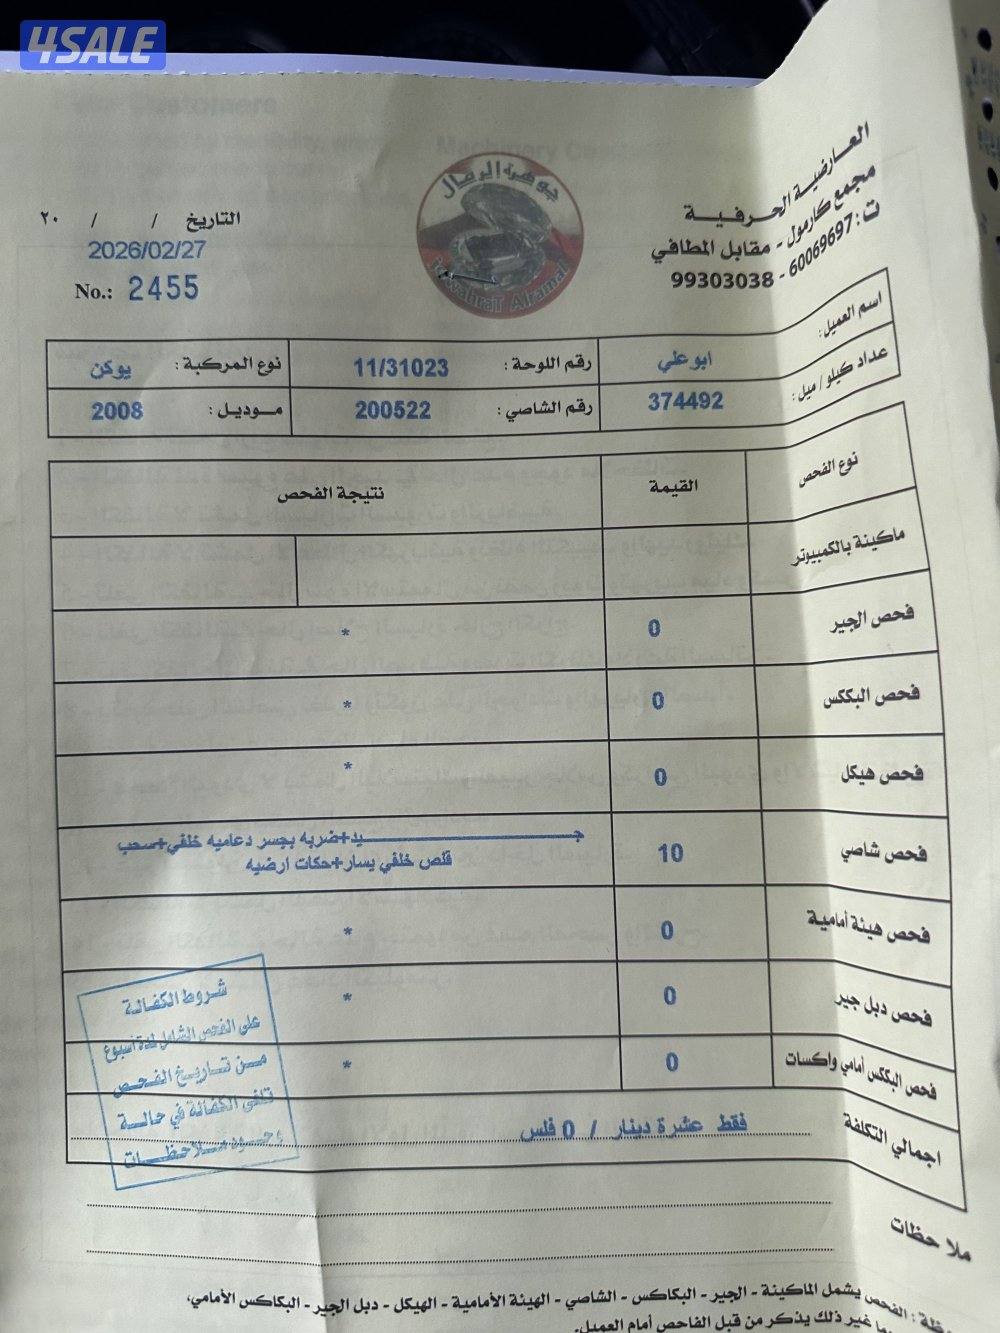 4SALE
العارضية الحرفية
مجمع كارمول - مقابل المطافي
ت: 60069697 - 99303038
جوهرة الرمال
JawahraT AlramaL
التاريخ / / ٢٠
2026/02/27
No.: 2455
اسم العميل: ابو علي رقم اللوحة: 11/31023 نوع المركبة: يوكن
عداد كيلو / ميل: 374492 رقم الشاصي: 200522 موديل: 2008
نوع الفحص القيمة نتيجة الفحص
ماكينة بالكمبيوتر
فحص الجير 0 *
فحص البككس 0 *
فحص هيكل 0 *
فحص شاصي 10 جـــيد+ضربه بجسر دعاميه خلفي+سحب
قلص خلفي يسار+حكات ارضيه
فحص هيئة أمامية 0 *
فحص دبل جير 0 *
فحص البككس أمامي واكسات 0 *
اجمالي التكلفة فقط عشرة دينار / 0 فلس
شروط الكفالة
على الفحص الشامل لمدة أسبوع
من تاريخ الفحص
تلغى الكفالة في حالة
وجود ملاحظات
ملاحظات
الفحص يشمل الماكينة - الجير - البكاكس - الشاصي - الهيئة الأمامية - الهيكل - دبل الجير - البكاكس الأمامي،
غير ذلك يذكر من قبل الفاحص أمام العميل.